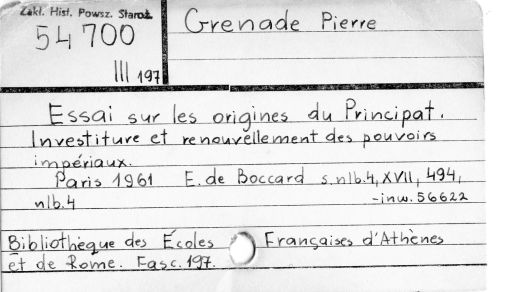 Zakł. Hist. Powsz. Staroż.
54 700
III 197
Grenade Pierre
Essai sur les origines du Principat.
Investiture et renouvellement des pouvoirs
impériaux.
Paris 1961 E. de Boccard s. nlb. 4, XVII, 494,
nlb. 4 - inw. 56622
Bibliothèque des Écoles Françaises d'Athènes
et de Rome. Fasc. 197.